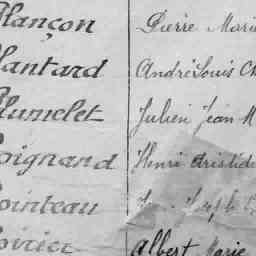 Plançon Pierre Marie
Plantard André Louis Ch
Plumelet Julien Jean M
Poignand Henri Aristide
Pointeau Joseph
Poirier Albert Marie